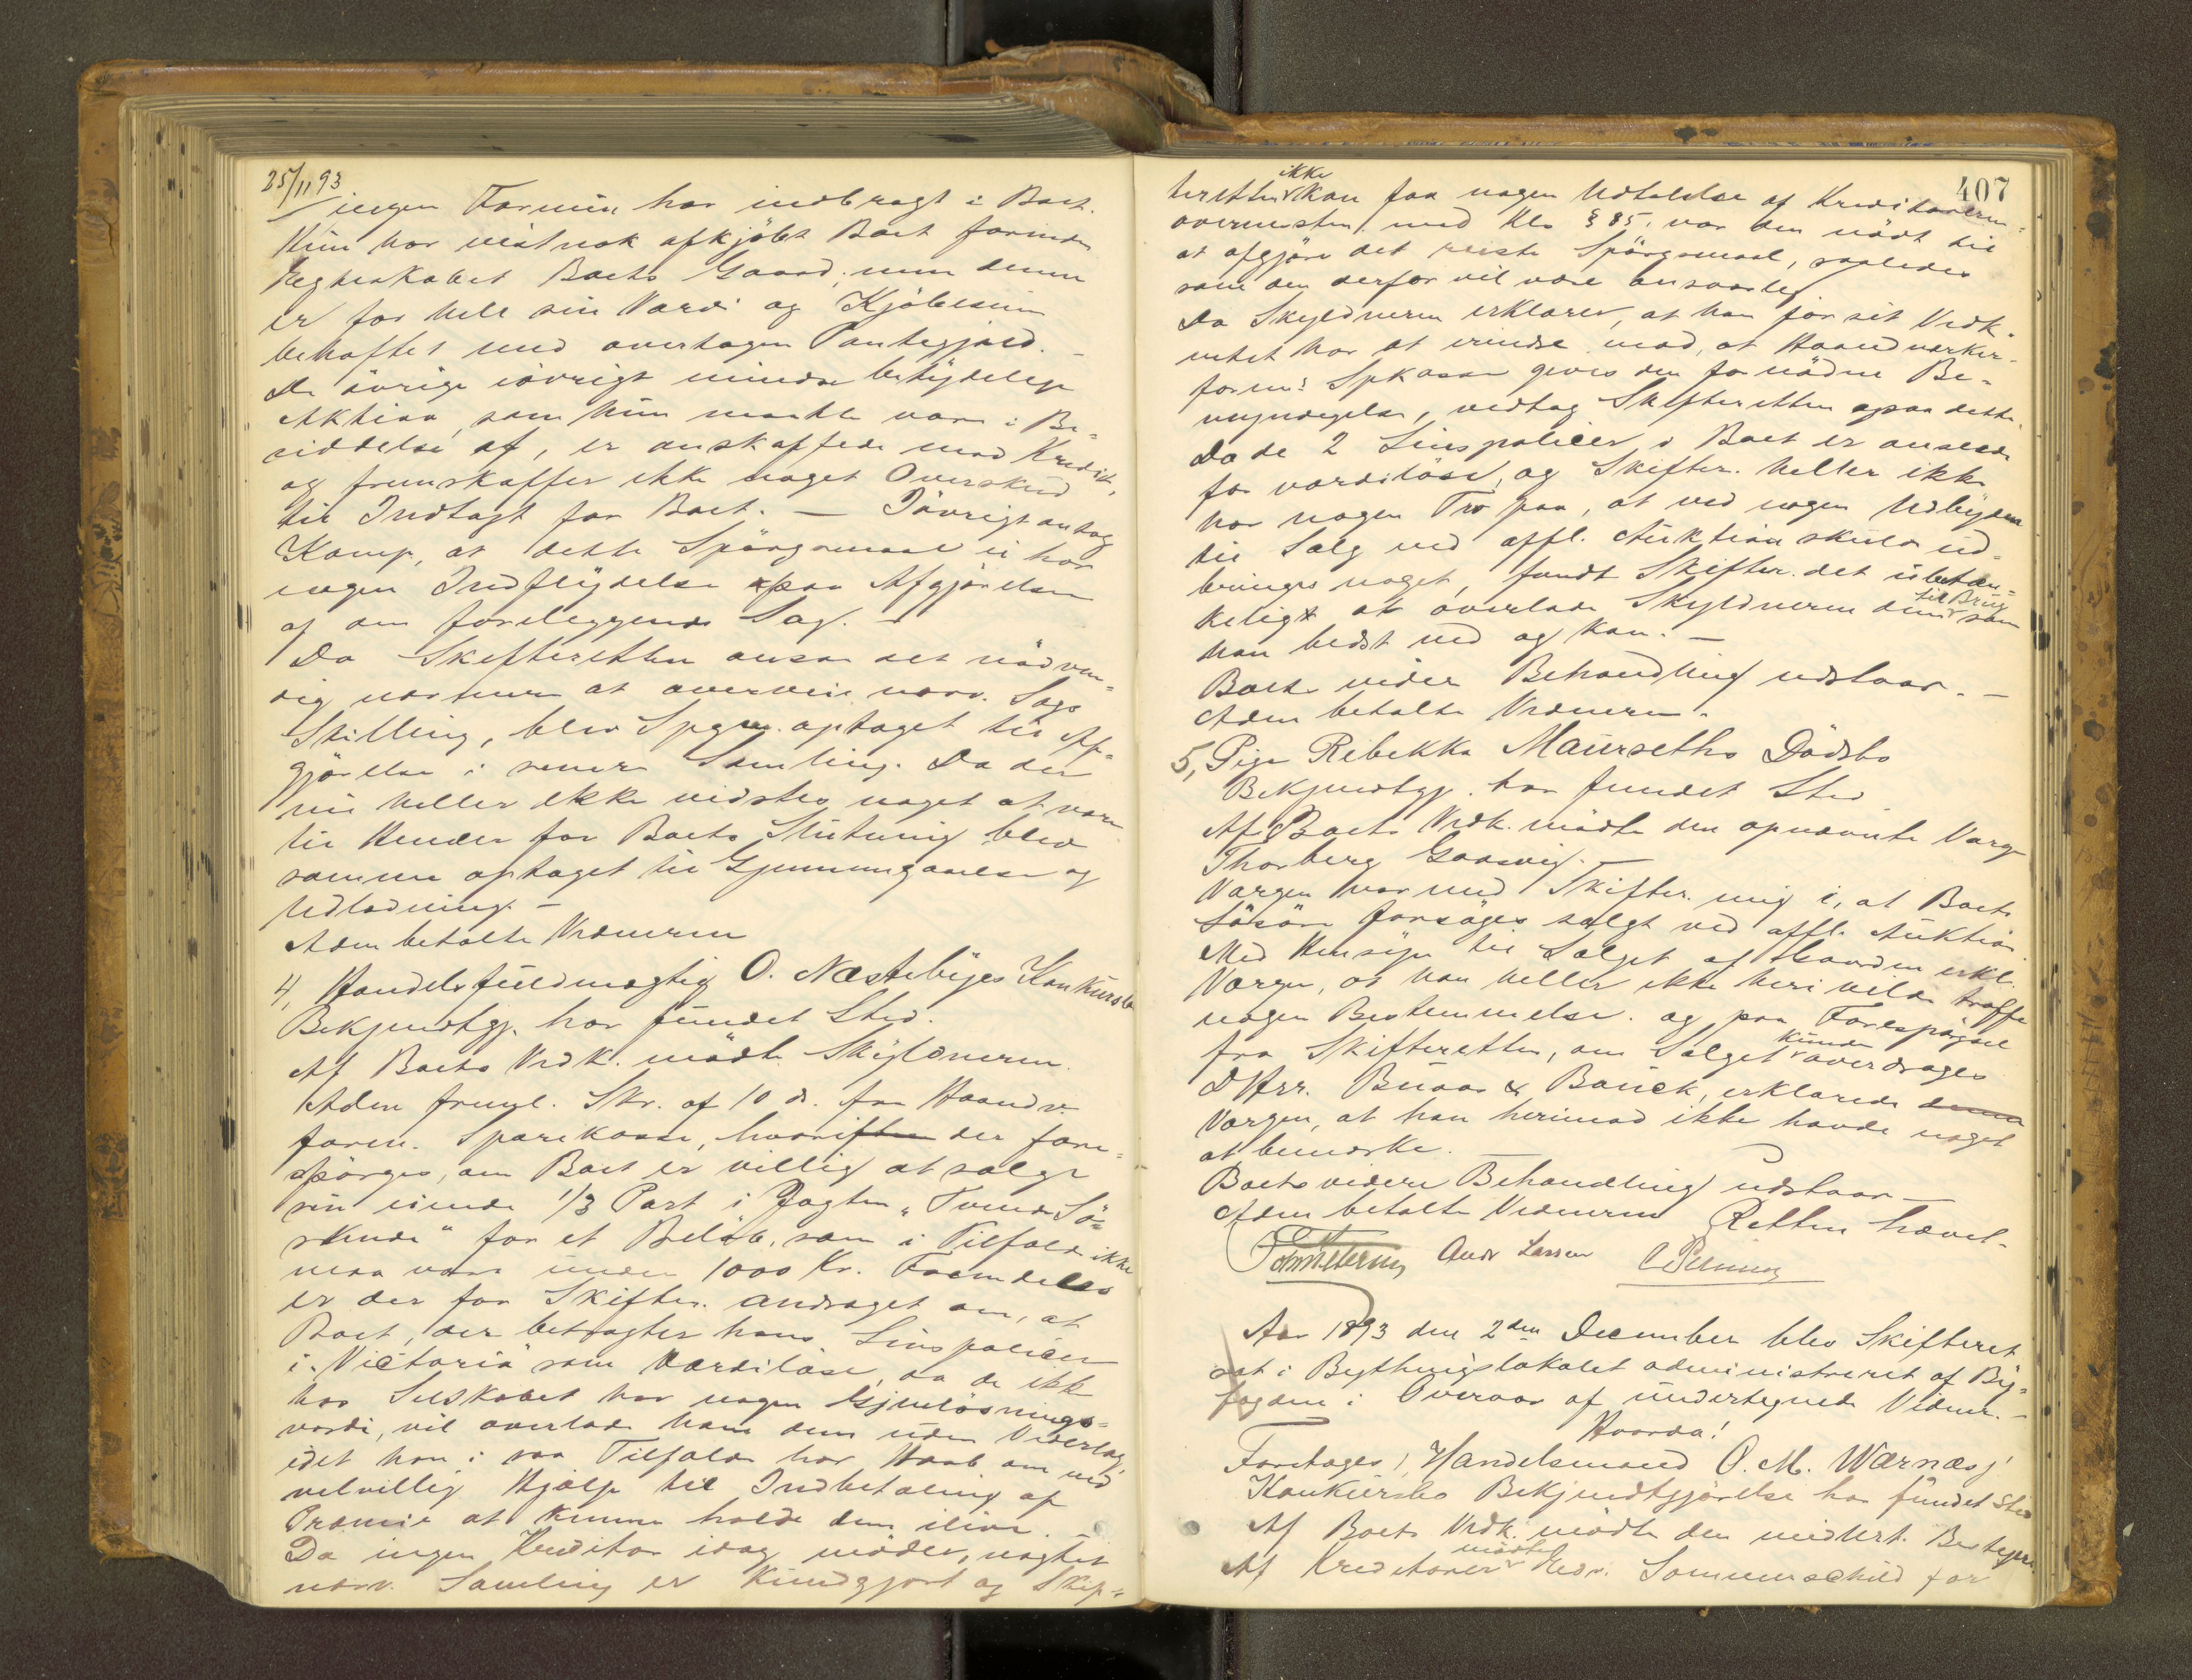 25/11 93
ingen Formue har indbragt i Boet.
Hun har vistnok afkjøbt Boet forinden
Ægteskabet Boets Gaard, men denne
er for hele sin Værdi og Kjøbesum
behæftet med overtagen Pantegjæld. –
De øvrige iøvrigt mindre betydelige
Aktiva, som hun maatte være i Be=
siddelse af, er anskaffede med Kredit,
og fremskaffer ikke noget Overskud
til Indtægt for Boet. – Iøvrigt antog
Kemp, at dette Spørgsmaal ei har
nogen Indflydelse paa Afgjørelsen
af den foreliggende Sag. –
Da Skifteretten ansaa det nødven=
dig nærmere at overveie nærv. Sags
Stilling, blev Spgm. optaget til Af=
gjørelse i senere Samling. Da der
nu heller ikke vidstes noget at være
til Hinder for Boets Slutning blev
samme optaget til Gjennemgaaelse og
Udlodning. –
Adm betalte Vidnerne
4, Handelsfuldmægtig O. Næstebyes Konkursbo
Bekjendtgj. har fundet Sted.
Af Boets Vedk. mødte Skyldneren.
Adm freml. Skr. af 10 ds. fra Haandv.
foren. Sparekasse, hvori der fore=
spørges, om Boet er villig at sælge
sin eiende 1/3 Part i Jagten "Tvende Sø=
skende" for et Beløb, som i Tilfælde ikke
maa være under 1000 Kr. Fremdeles
er der for Skifter. andraget om, at
Boet, der betragter hans Livspolicer
i "Victoria" som værdiløse, da de ikke
hos Selskabet har nogen Gjenløsnings=
værdi, vil overlade ham dem uden Vederlag,
idet han i saa Tilfælde har Haab om ved
velvillig Hjælp til Indbetaling af
Præmie at kunne holde dem ilive. –
Da ingen Kreditor idag møder, uagtet
nærv. Samling er kundgjort og Skif=
407
teretten ikke kan faa nogen Udtalelse af Kreditorerne
overensstem. med Kl. § 85, var den nødt til
at afgjøre det reiste Spørgsmaal, saaledes
som den derfor vil være ansvarlig
Da Skyldneren erklærer, at han for sit Vedk.
intet har at erindre mod, at Haandværker=
foren: Spkasse gives den fornødne Be=
myndigelse, vedtog Skifteretten ogsaa dette.
Da de 2 Livspolicer i Boet er ansede
for værdiløse, og Skifter. heller ikke
har nogen Tro paa, at ved nogen Udbyden
til Salg ved offl. Auktion skulde ud=
bringes noget, fandt Skifter. det ubetæn=
keligt at overlade Skyldneren dem til Brug som
han bedst ved og kan. –
Boets videre Behandling udstaar. –
Adm betalte Vidnerne.
5, Pige Rebekka Maurseths Dødsbo
Bekjendtgj. har fundet Sted
Af Boets Vedk. mødte den opnævnte Værge
Thorberg Gaasvig. –
Værgen var med Skifter. enig i, at Boets
Løsøre forsøges solgt ved offl. Auktion
Med Hensyn til Salget af Gaarden erkl.
Værgen, at han heller ikke heri vilde træffe
nogen Bestemmelse. og paa Forespørgsel
fra Skifteretten, om Salget kunde overdrages
DHrr. Buaas & Bauck, erklærede
Værgen, at han herimod ikke havde noget
at bemærke.
Boets videre Behandling udstaar –
Adm betalte Vidnerne Retten hævet.
Andr Larsen
Aar 1893 den 2den December blev Skifteret
sat i Bythingslokalet administreret af By=
fogden i Overvær af undertegnede Vidner. –
Hvorda!
Foretages 1, Handelsmand O. M. Wærnæs's
Konkursbo Bekjendtgjørelse har fundet Sted
Af Boets Vedk. mødte den midlert. Bestyrer.
Af Kreditorer mødte Edv. Sommerschild for